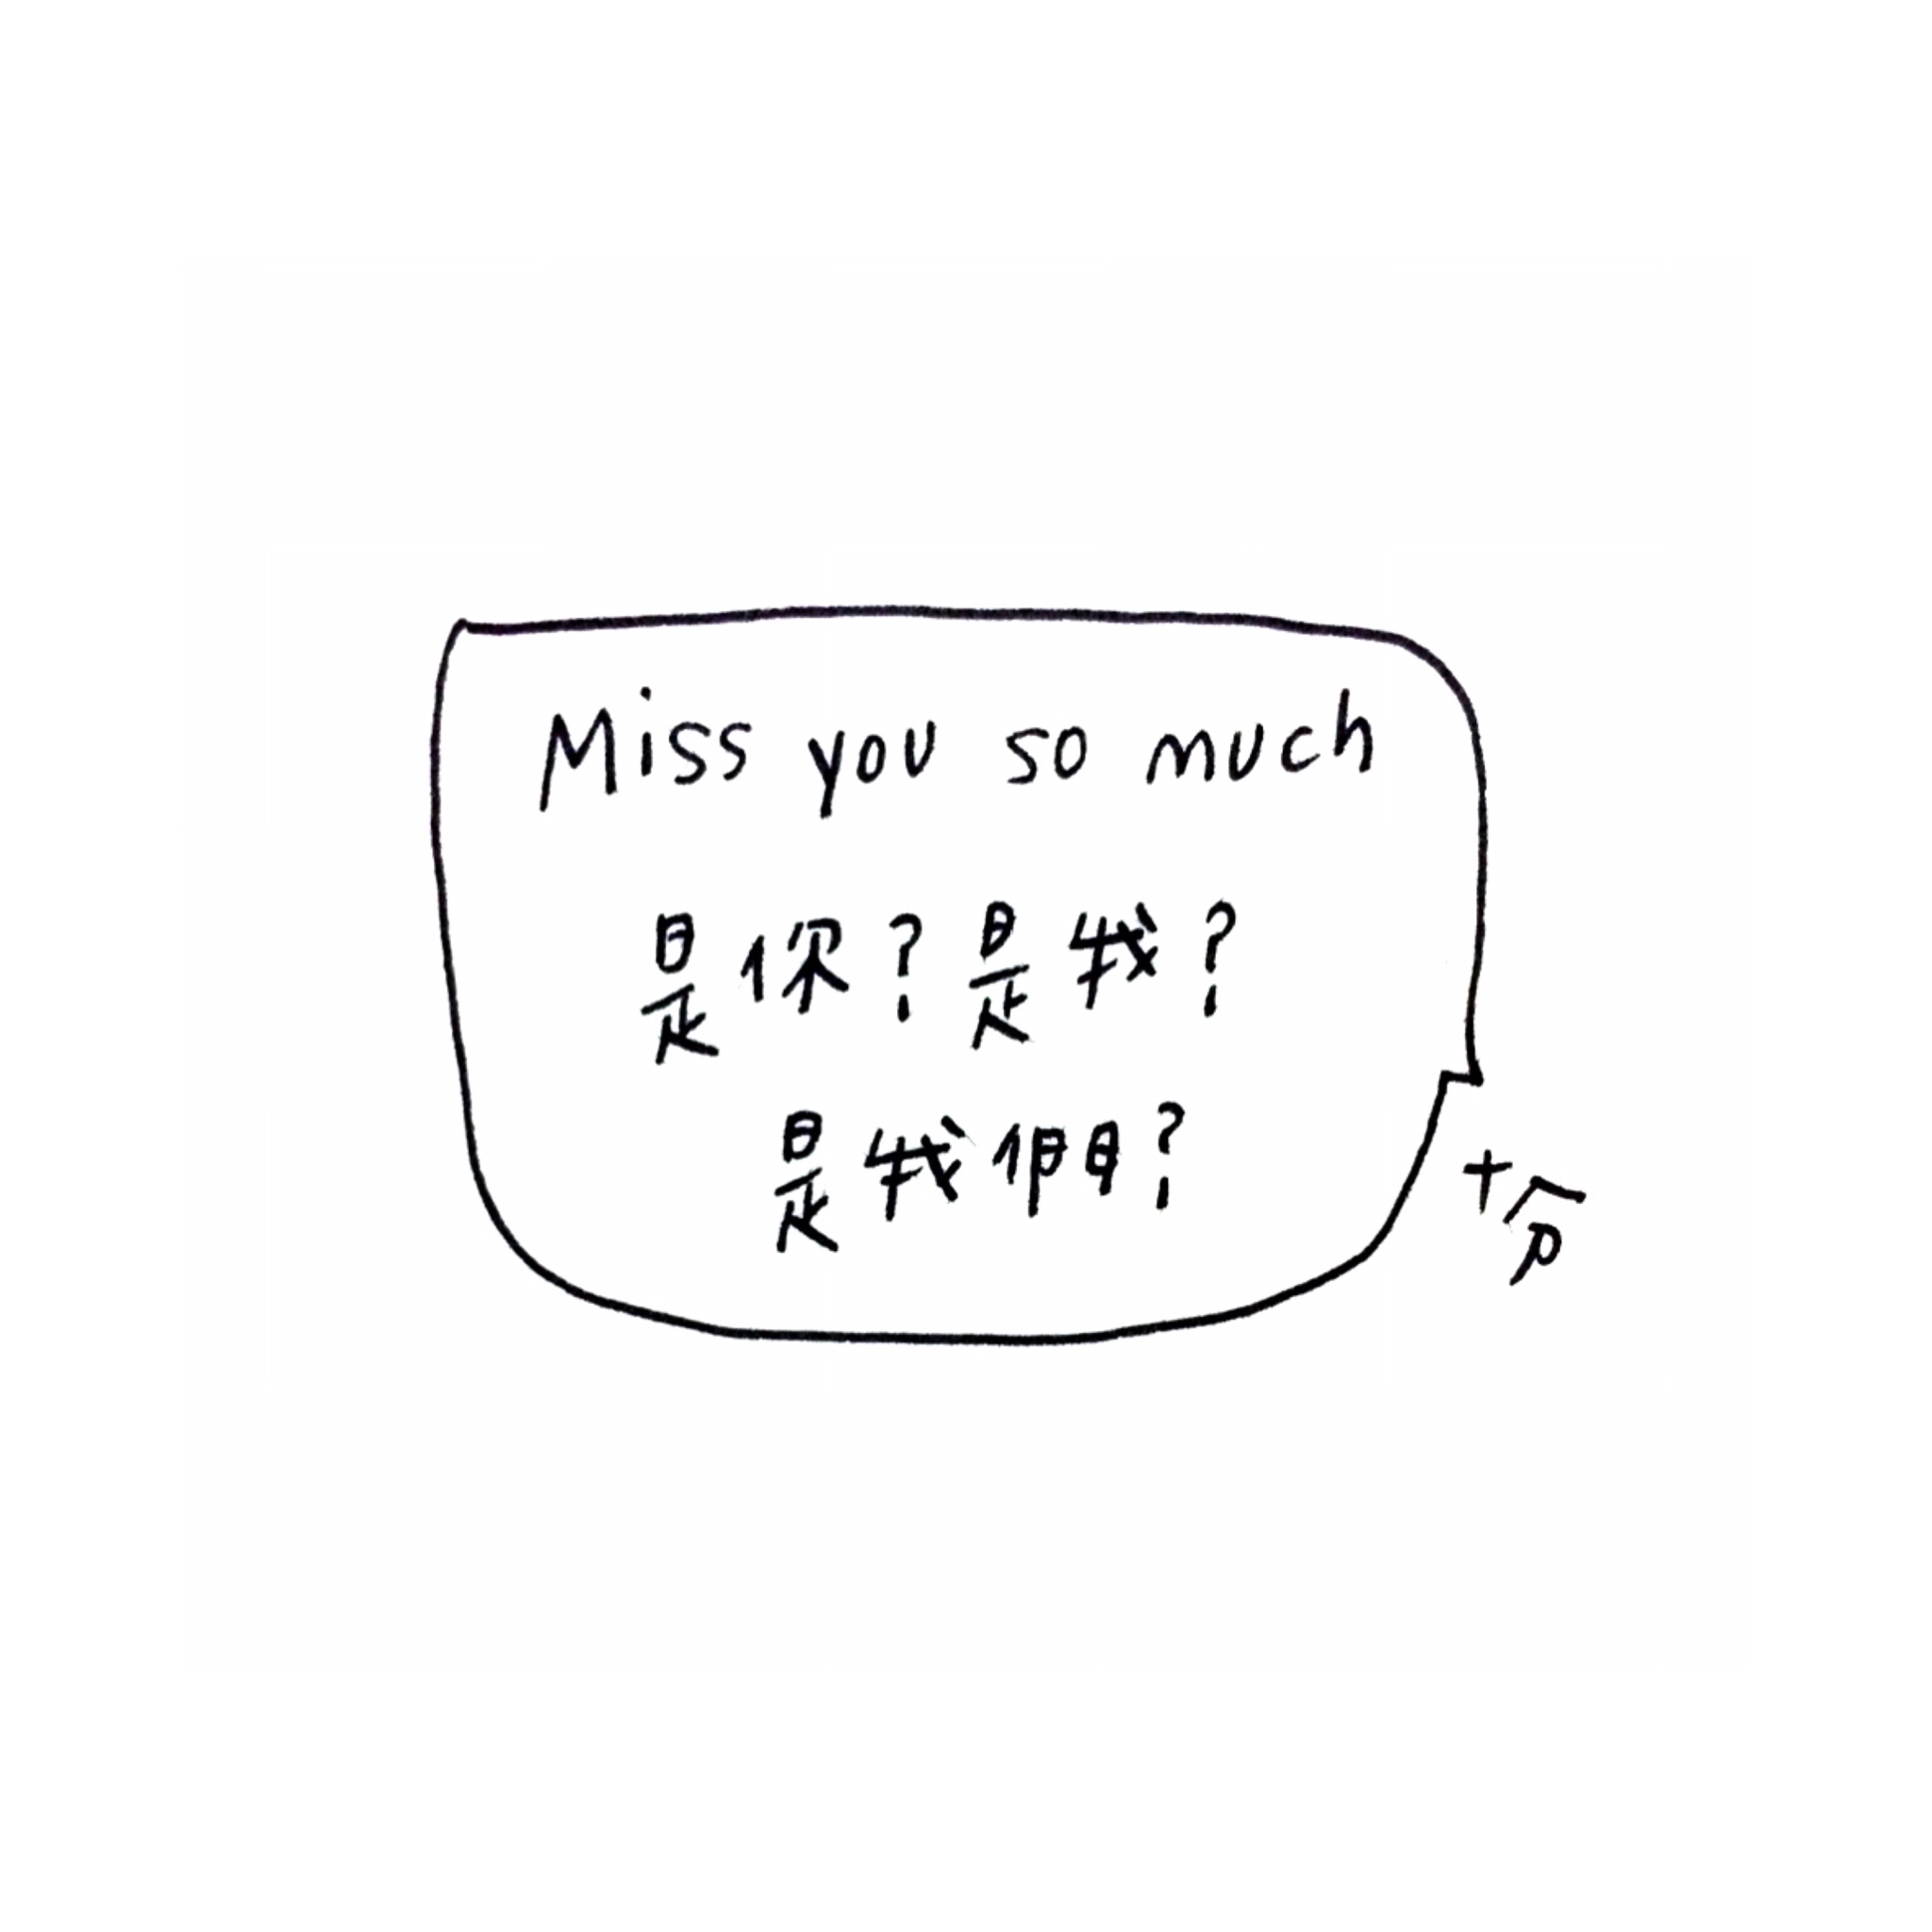 Miss you so much
是你?是我?
是我們?
十分